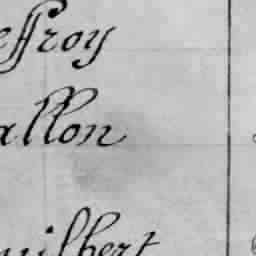 effroy
allon
uilbert